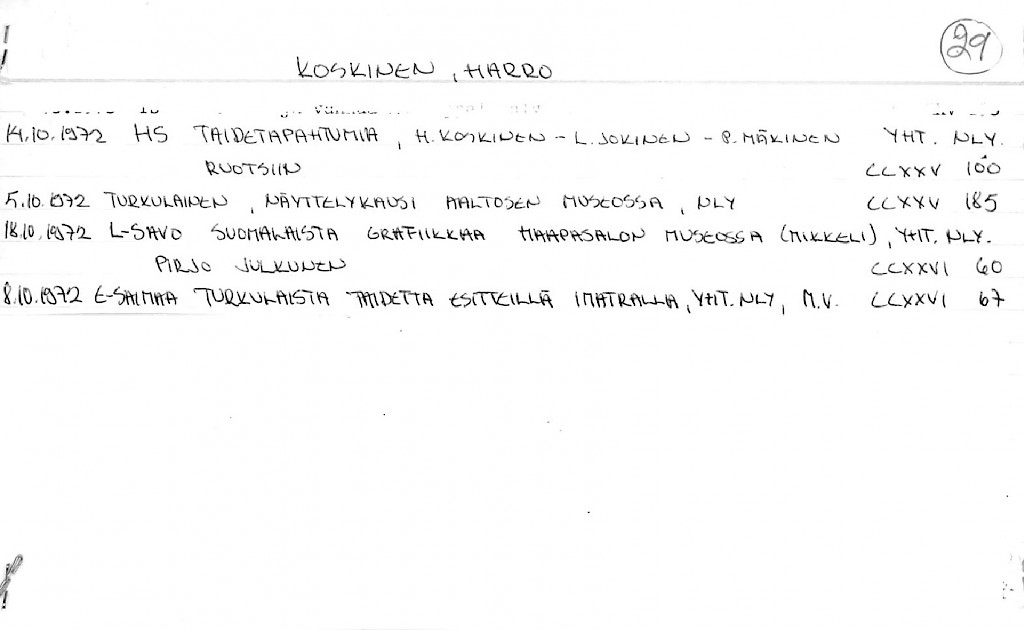 29
KOSKINEN, HARRO
14.10.1972 HS TAIDETAPAHTUMIA, H. KOSKINEN - L. JOKINEN - P. MÄKINEN YHT. NLY.
RUOTSIIN CCXXV 100
5.10.1972 TURKULAINEN, NÄYTTELYKAUSI AALTOSEN MUSEOSSA, NLY CCXXV 185
18.10.1972 L-SAVO SUOMALAISTA GRAFIIKKAA HAAPASALON MUSEOSSA (MIKKELI), YHT. NLY.
PIRJO JULKUNEN CCXXVI 60
8.10.1972 E-SAIMAA TURKULAISTA TAIDETTA ESITTEILLÄ IMATRALLA, YHT. NLY, M.V. CCXXVI 67